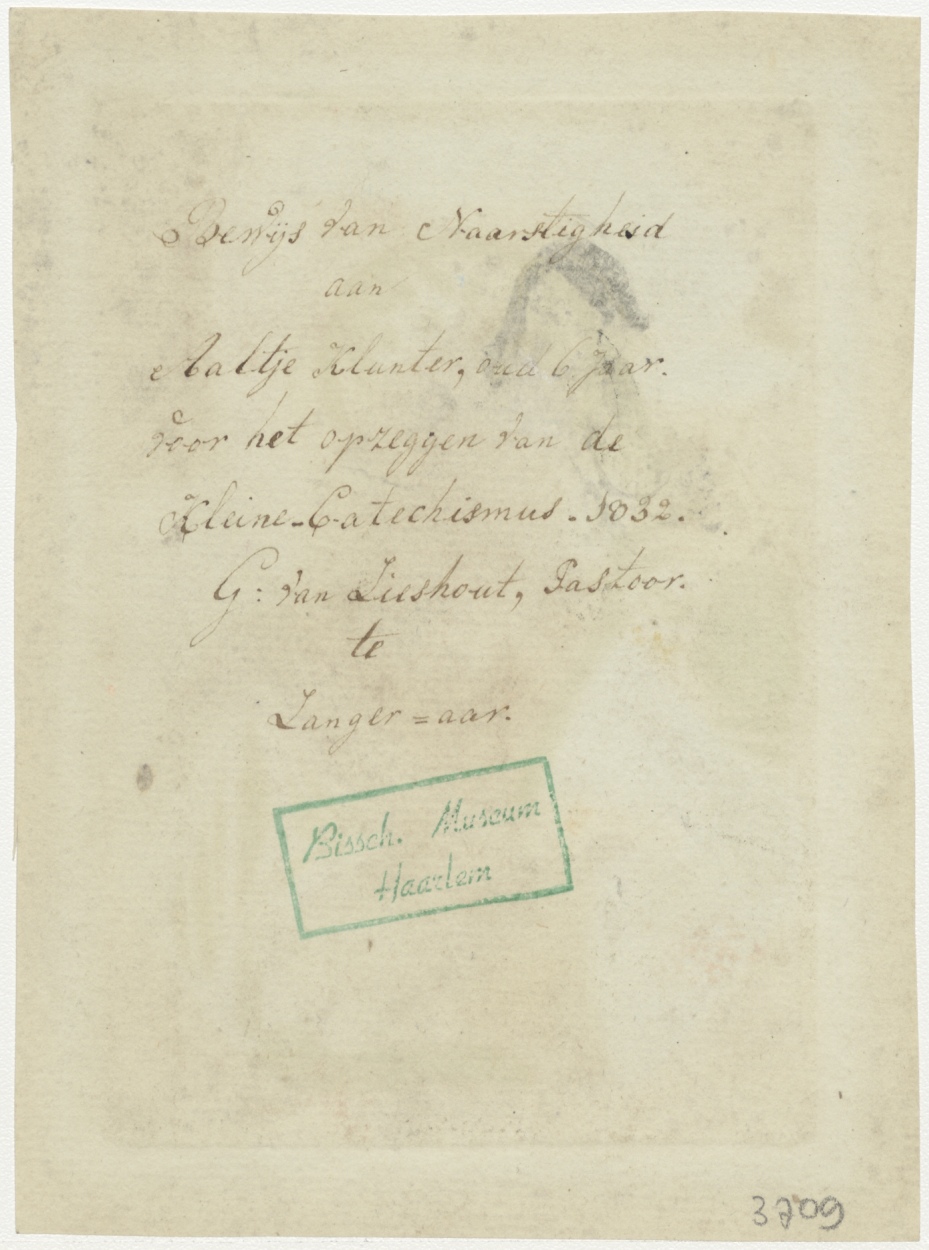 Bewijs van Naarstigheid
aan
Aaltje Klunter, oud 6 Jaar.
voor het opzeggen van de
Kleine-Catechismus - 1832.
G: van Lieshout, Pastoor.
te
Langer=aar.
Bissch. Museum
Haarlem
3709